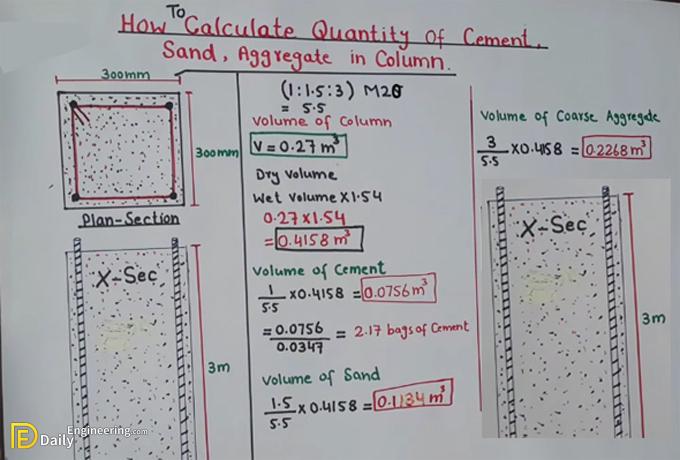 How To Calculate Quantity Of Cement,
Sand, Aggregate in Column.
300mm
300mm
Plan-Section
X-Sec
3m
(1:1.5:3) M20
= 5.5
Volume of Column
V = 0.27 m³
Dry Volume
Wet Volume X 1.54
0.27 X 1.54
= 0.4158 m³
Volume of Cement
1/5.5 X 0.4158 = 0.0756 m³
= 0.0756/0.0347 = 2.17 bags of Cement
Volume of Sand
1.5/5.5 X 0.4158 = 0.1134 m³
Volume of Coarse Aggregate
3/5.5 X 0.4158 = 0.2268 m³
X-Sec
3m
DE Daily Engineering.com